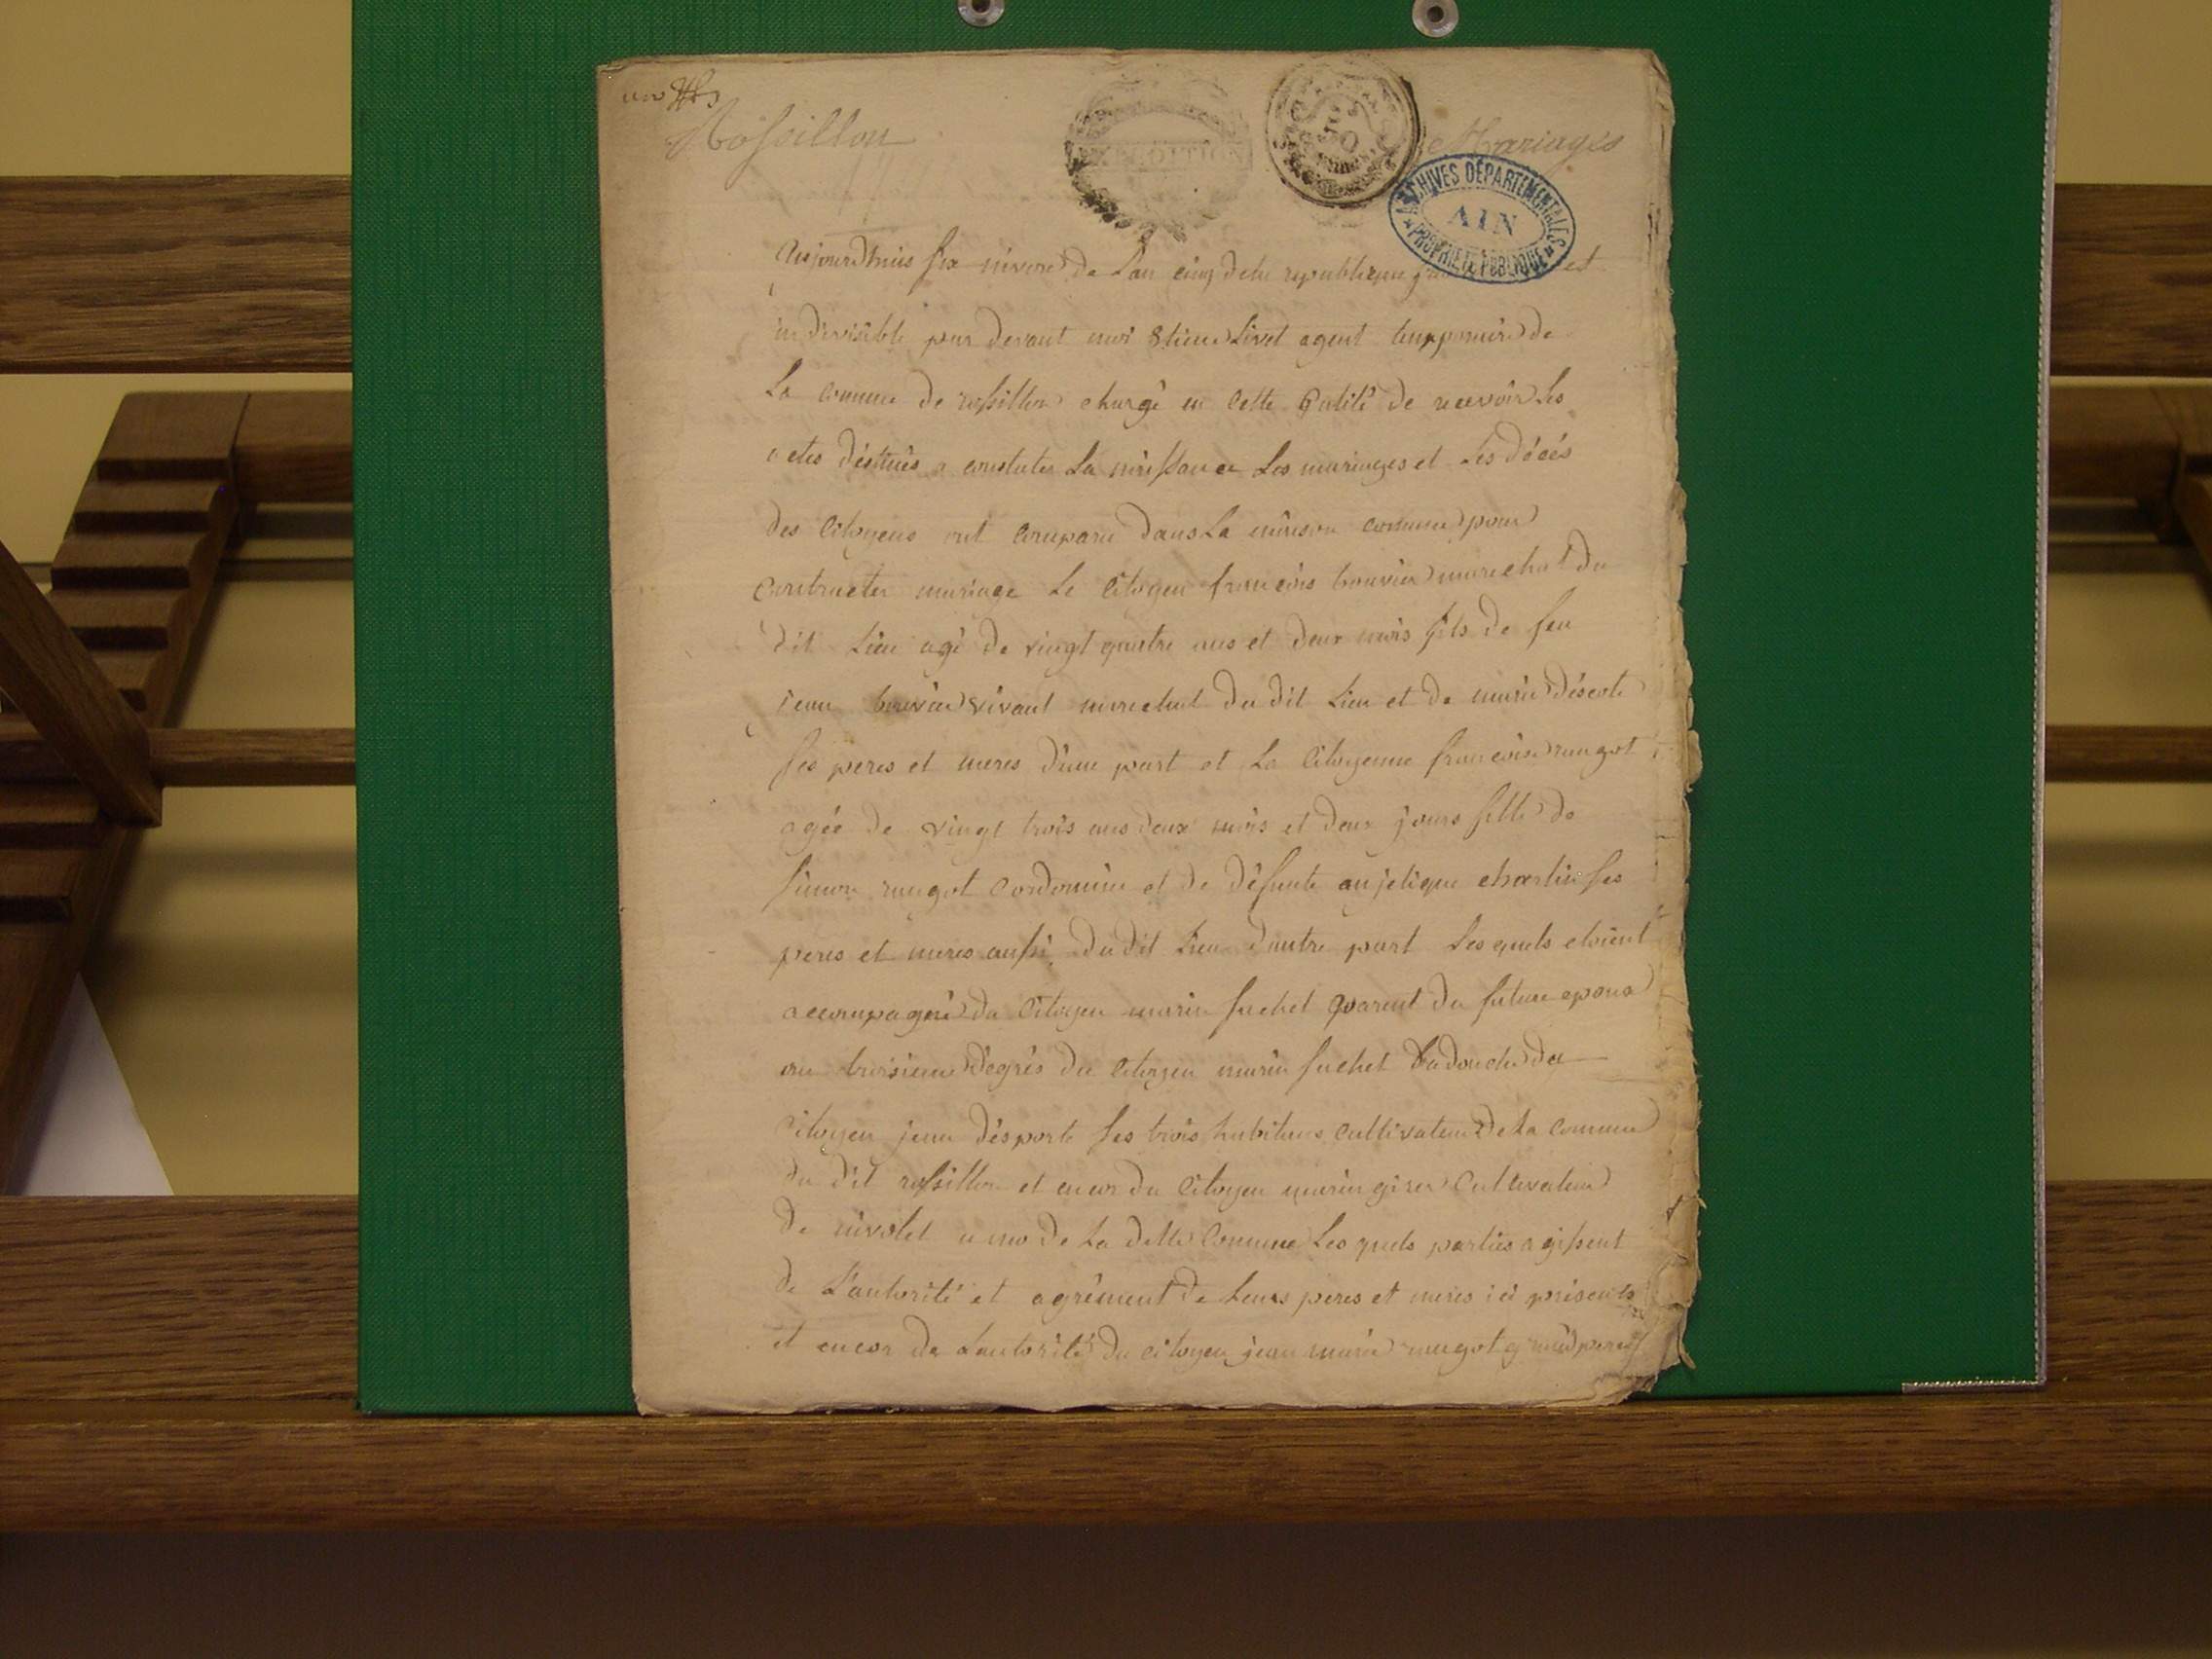 Rossillon
Mariages
EXPEDITION
50
ARCHIVES DÉPARTEMENTALES
AIN
PROPRIÉTÉ PUBLIQUE
Aujourdhuis six nivose de Lan cinq dela republique et
indivisible par devant moi Livet agent de
La comune de rossillon chargé en Cette Qalité de recevoir Les
actes déstinés a constater La naissance Les mariages et Les décés
des Citoyens ont Comparu dans La maison comune pour
Contracter mariage Le Citoyen francois bouvier marechal du
dit Lieu agé de vingt quatre ans et deux mois fils de feu
jean bouvier vivant marechal du dit Lieu et de marie
ses peres et meres d'une part et La Citoyenne francoise rugot
agée de vingt trois ans deux mois et deux jours fille de
simon rugot Cordonnier et de défunte anjelique charlin ses
peres et meres aussi du dit Lieu dautre part Les quels etoient
accompagné du Citoyen marin fuchet parent du future epoux
au troisieme degrés du Citoyen marin fuchet du
Citoyen jean désporte Les trois habitans Cultivateurs de La Comune
du dit rossillon et encor du Citoyen marin Cultivateur
de nivolet de La ditte Comune Les quels parties agissent
de L'autorité et agrément de Leurs peres et meres ici présents
et encor de Lautorité du citoyen jean marie rugot